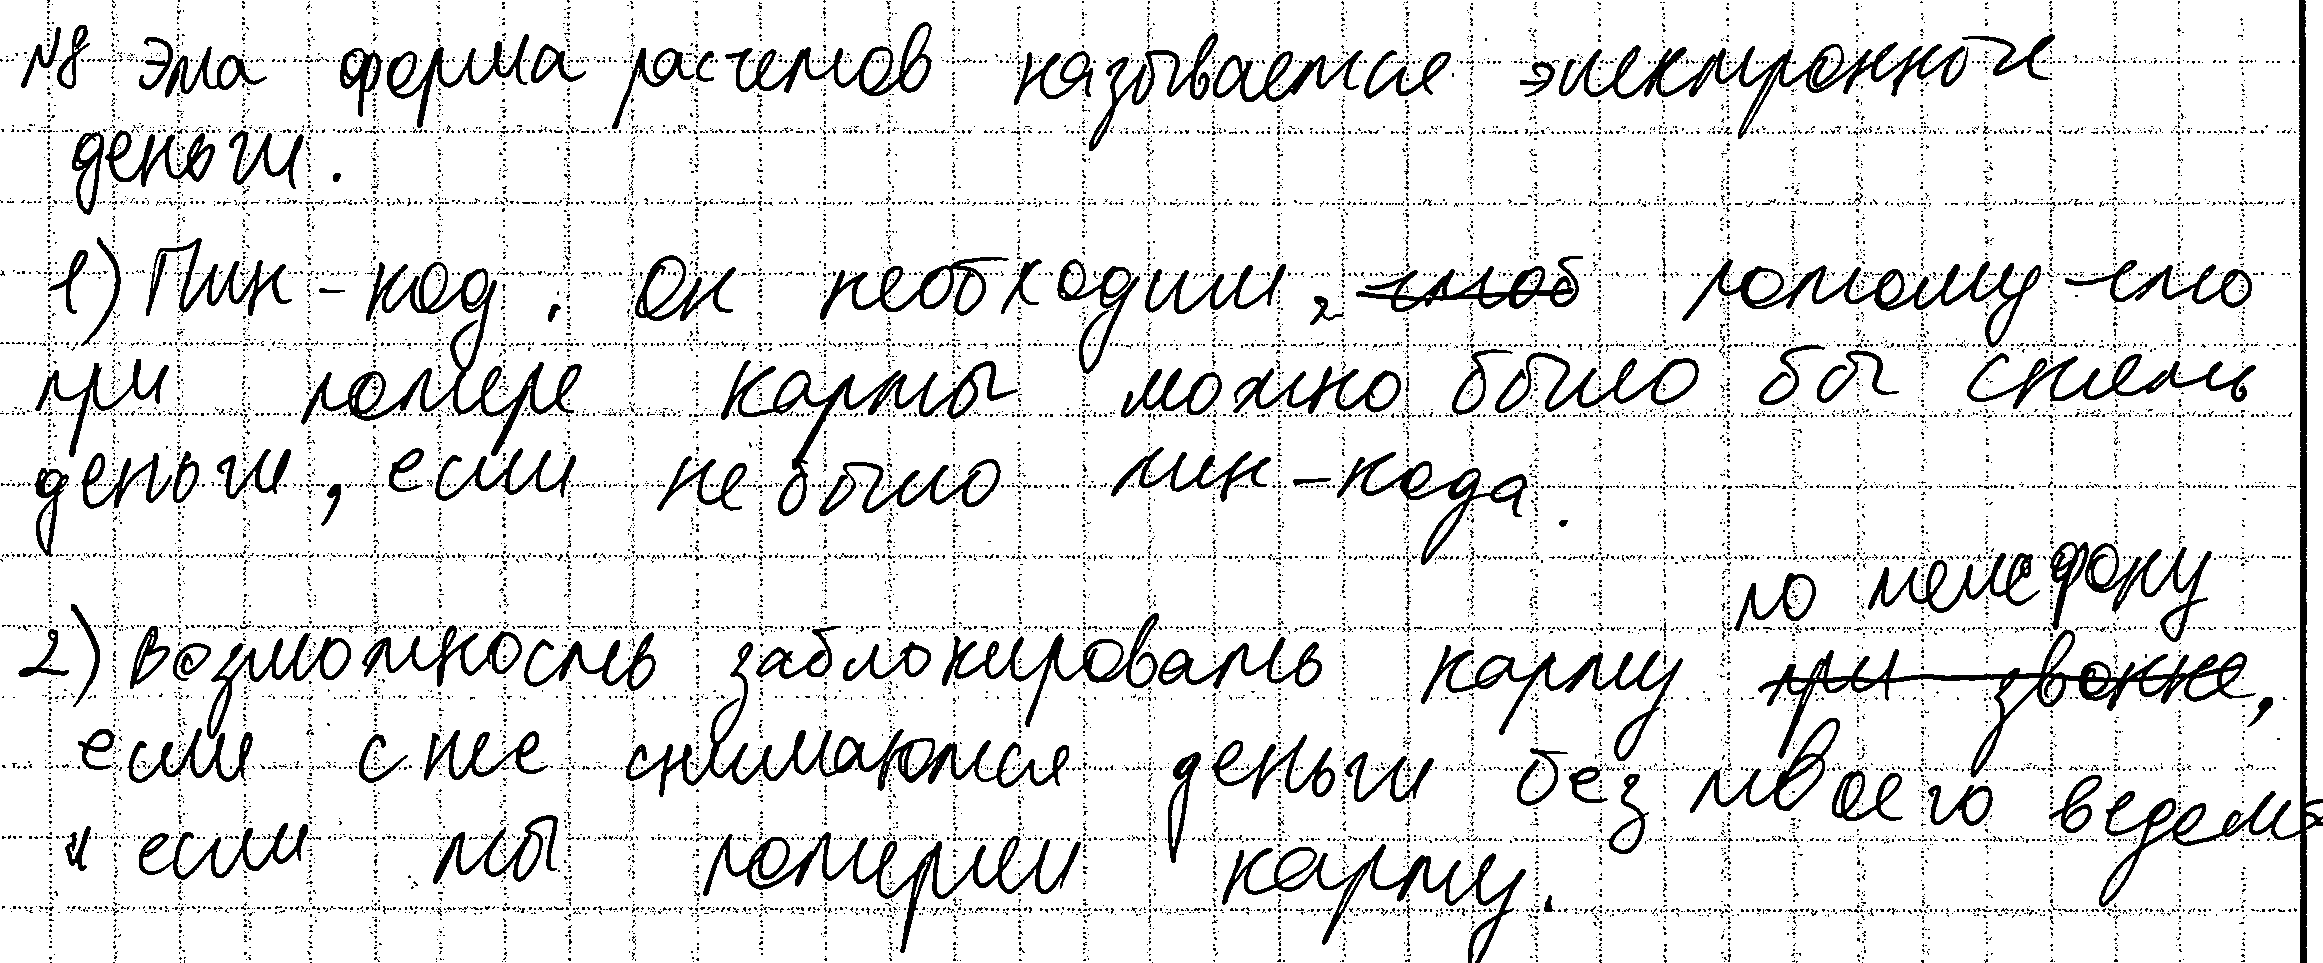 №8 Эта форма расчетов называется электронной
деньги.
1) Пин-код. Он необходим, чтоб потому-что
при потере карты можно было бы снять
деньги, если не было пин-кода.
по телефону
2) возможность заблокировать карту при звонке,
если с нее снимаются деньги без твоего ведома
и если ты потерял карту.